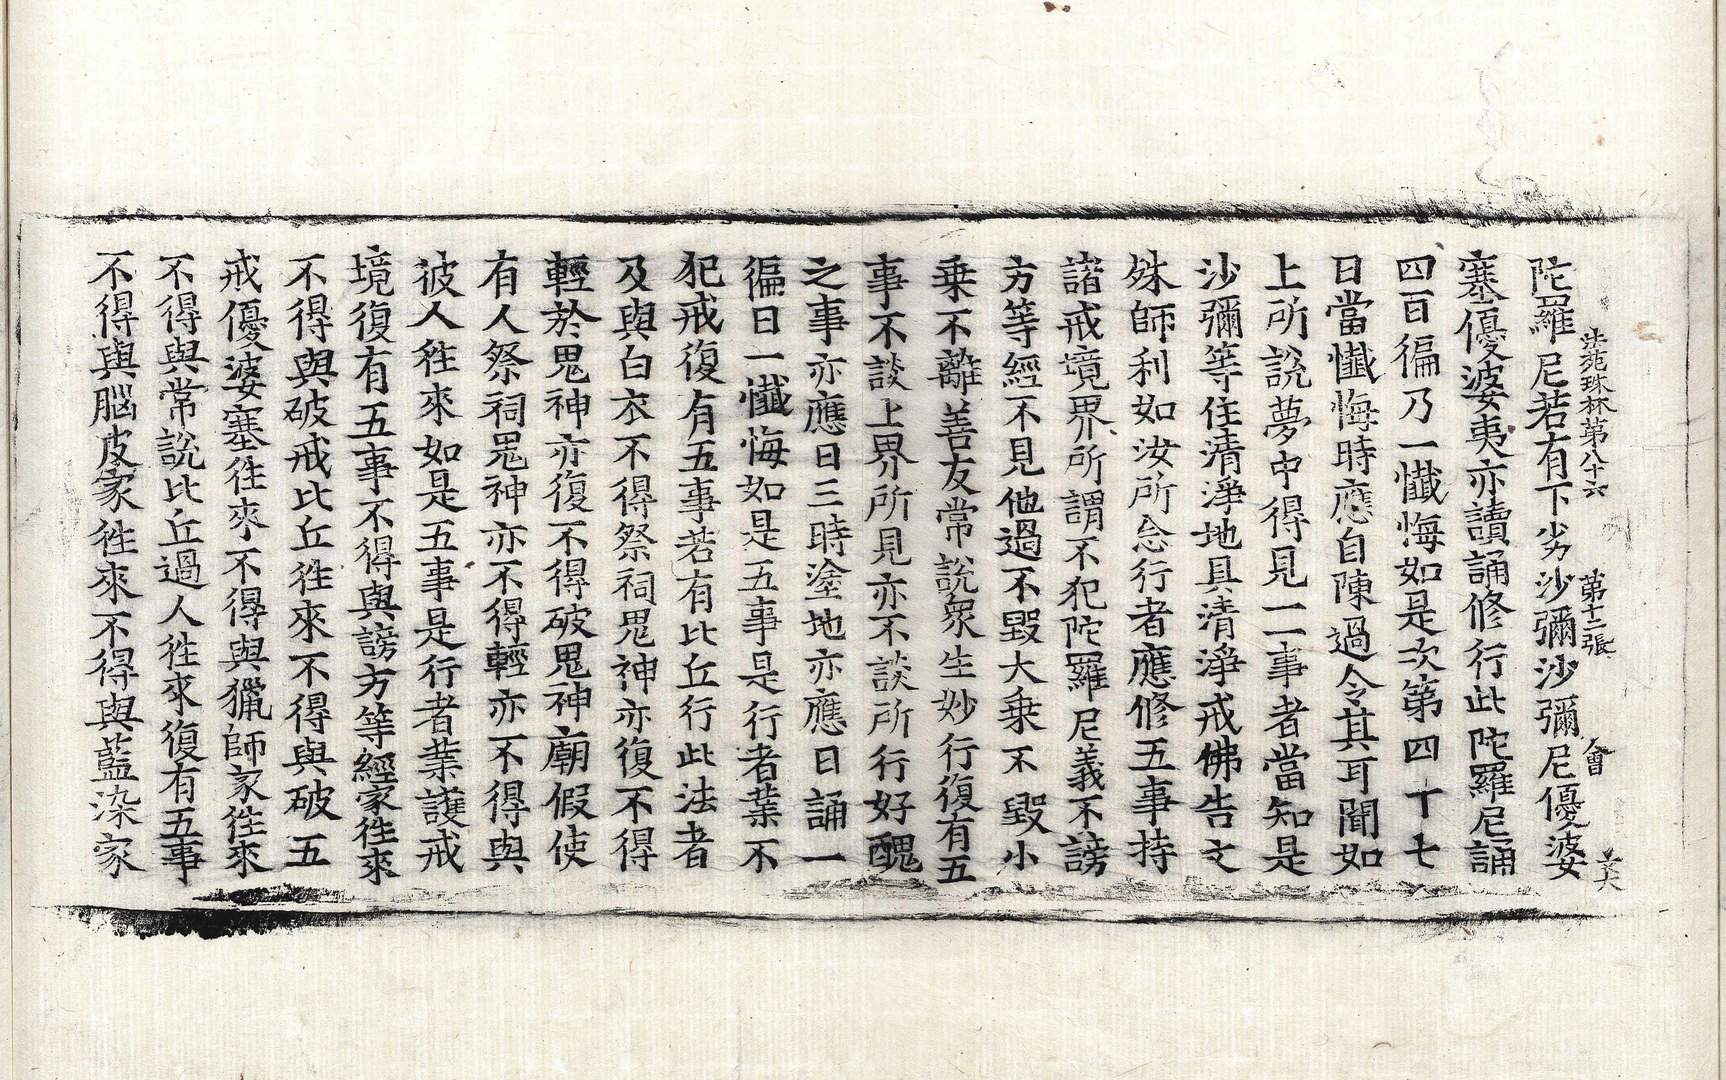 法苑珠林第八十六 第十二張 會
陀羅尼若有下劣沙彌沙彌尼優婆
塞優婆夷亦讀誦修行此陀羅尼誦
四百徧乃一懺悔如是次第四十七
日當懺悔時應自陳過令其耳聞如
上所說夢中得見一一事者當知是
沙彌等住清淨地具清淨戒佛告文
殊師利如汝所念行者應修五事持
諸戒境界所謂不犯陀羅尼義不謗
方等經不見他過不毀大乘不毀小
乘不離善友常說衆生妙行復有五
事不談上界所見亦不談所行好醜
之事亦應日三時塗地亦應日誦一
徧日一懺悔如是五事是行者業不
犯戒復有五事若有比丘行此法者
及與白衣不得祭祠鬼神亦復不得
輕於鬼神亦復不得破鬼神廟假使
有人祭祠鬼神亦不得輕亦不得與
彼人徃來如是五事是行者業護戒
境復有五事不得與謗方等經家徃來
不得與破戒比丘徃來不得與破五
戒優婆塞徃來不得與獵師家徃來
不得與常說比丘過人徃來復有五事
不得與腦皮家徃來不得與藍染家